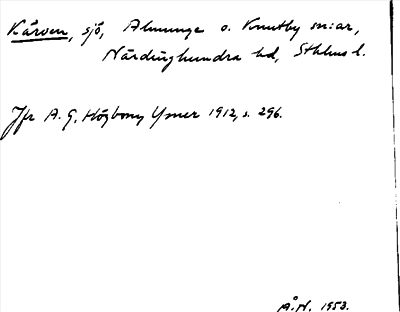 Kärven, sjö, Almunge o. Knutby sn:ar,
Närdinghundra hd, Sthlms l.
Jfr A. G. Högbom, Ymer 1912, s. 296.
Å.H. 1953.